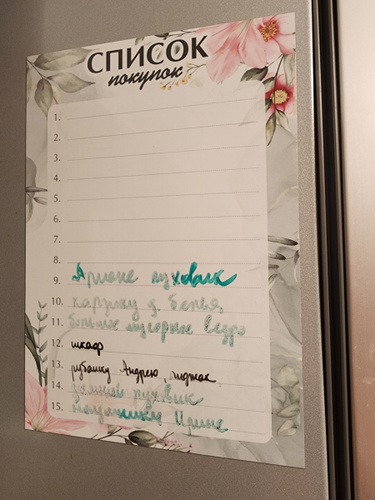 СПИСОК
покупок
1.
2.
3.
4.
5.
6.
7.
8.
9. Арионе пуховик
10. карзину д. белья
11. большие мусорные ведро
12. шкаф
13. рубашку Андрею, пиджак
14. зимний пуховик
15. наушники Ирине